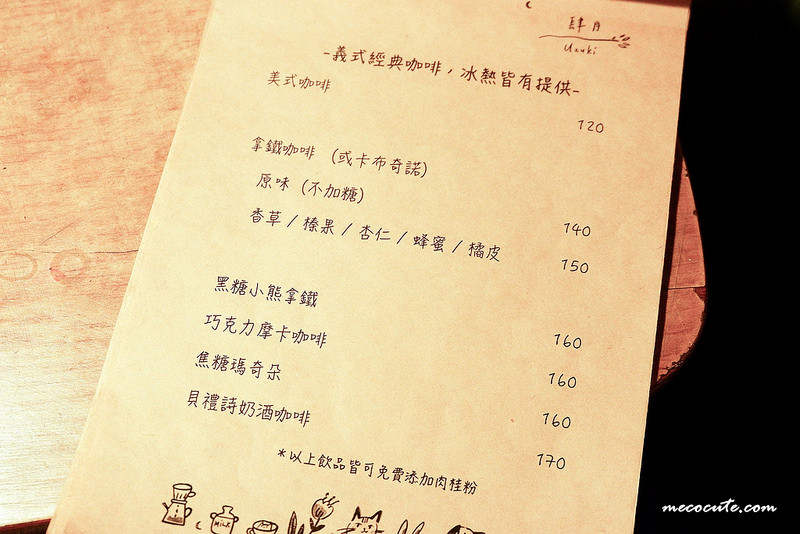 肆月
Uzuki
-義式經典咖啡，冰熱皆有提供-
美式咖啡 120
拿鐵咖啡 (或卡布奇諾)
原味 (不加糖) 140
香草 / 榛果 / 杏仁 / 蜂蜜 / 橘皮 150
黑糖小熊拿鐵 160
巧克力摩卡咖啡 160
焦糖瑪奇朵 160
貝禮詩奶酒咖啡 170
*以上飲品皆可免費添加肉桂粉
MILK
mecocute.com